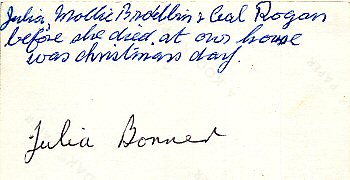 Julia, Mollie Brobbin & Ceal Rogan
before she died at our house
was christmas day.
Julia Bonner